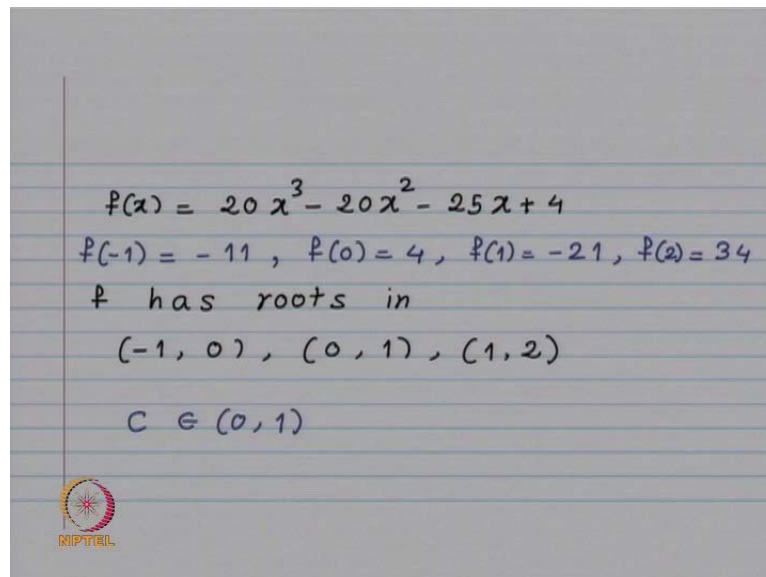 f(x) = 20x³ - 20x² - 25x + 4
f(-1) = -11, f(0) = 4, f(1) = -21, f(2) = 34
f has roots in
(-1, 0), (0, 1), (1, 2)
C ∈ (0, 1)
NPTEL